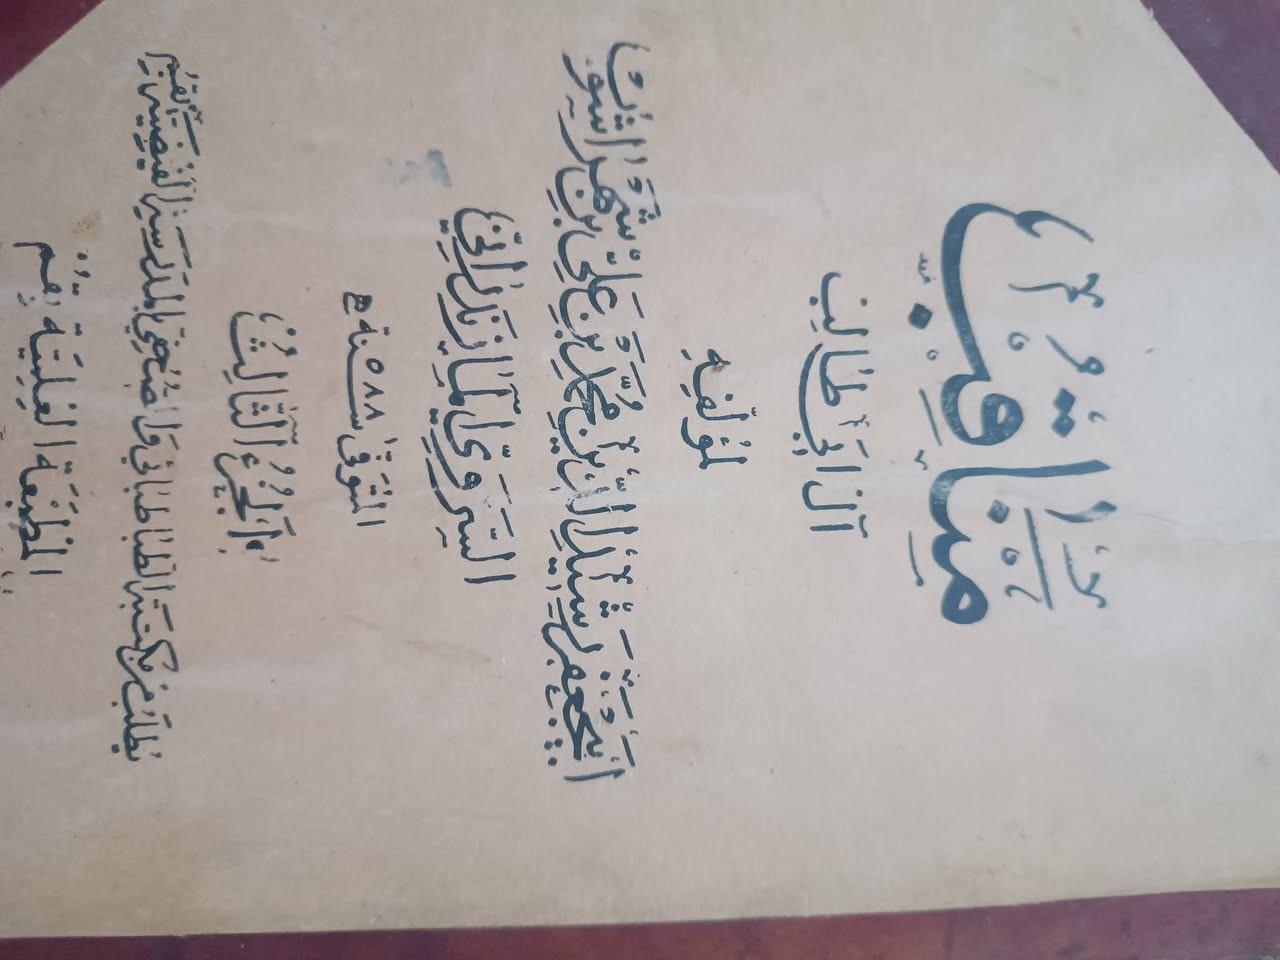 مَنَاقِبُ
آلِ اَبِي طَالِبٍ
لِمُؤَلِّفِهِ
اَبِي جَعْفَرٍ رَشِيدِ الدِّينِ مُحَمَّدِ بْنِ عَلِيِّ بْنِ شَهْرِ آشُوبَ
السَّرَوِيِّ الْمَازَنْدَرَانِيِّ
المتوفى سنة ٥٨٨ هـ
اَلْجُزْءُ الثَّالِثُ
يطلب من مكتبة الطباطبائي في المدرسة الفيضية بقم
المطبعة العلمية بقم